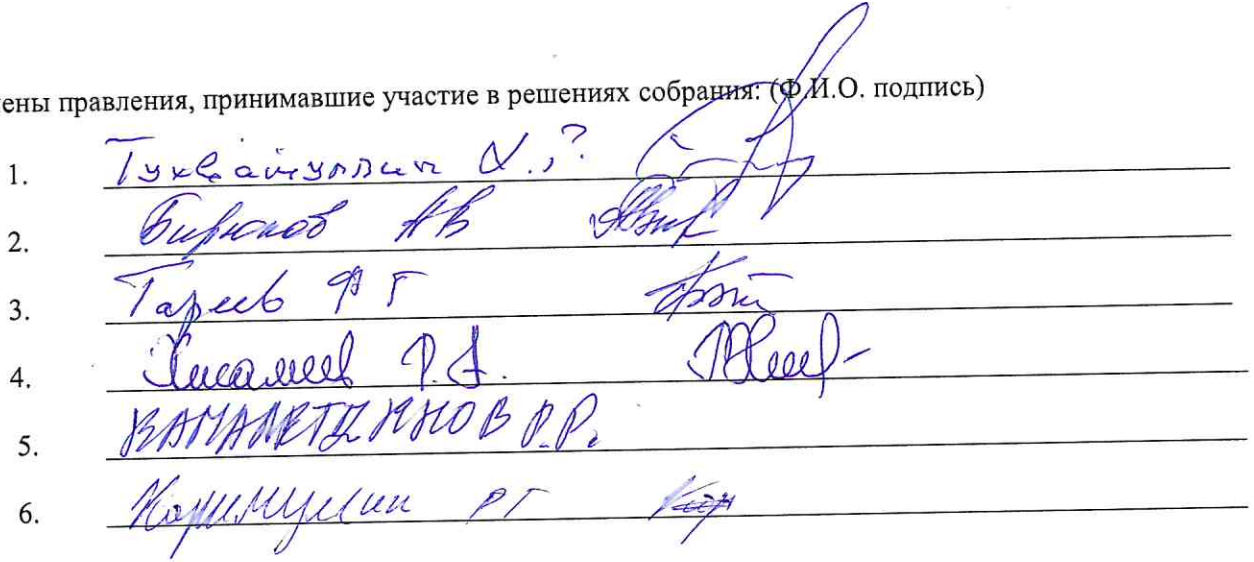 ены правления, принимавшие участие в решениях собрания: (Ф.И.О. подпись)
1. Тухватуллин
2. Бирюков АВ
3. Гареев Ф Г
4. Хисамиев Р.А.
5. КАМАЛЕТДИНОВ Р.Р.
6. Каримуллин РГ